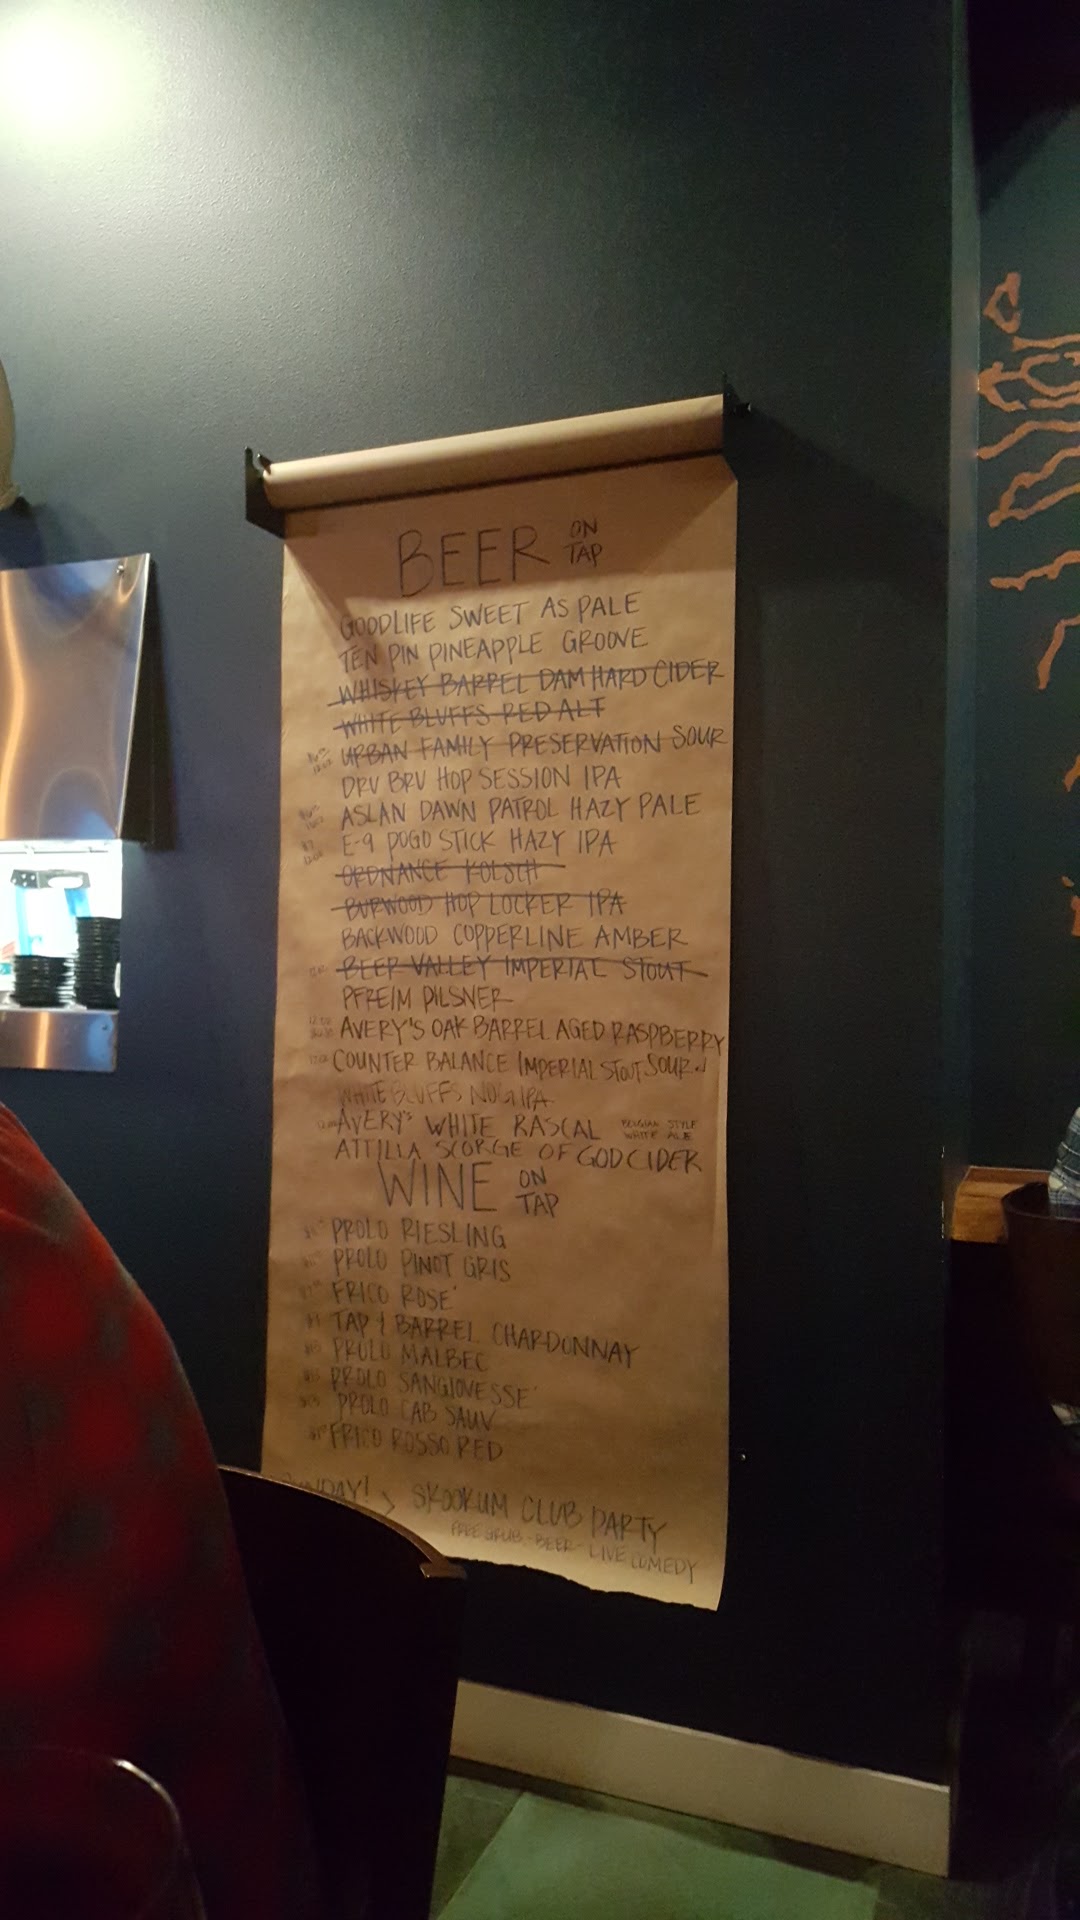 BEER ON TAP
GOODLIFE SWEET AS PALE
TEN PIN PINEAPPLE GROOVE
WHISKEY BARREL DAM HARD CIDER
WHITE BLUFFS RED ALT
URBAN FAMILY PRESERVATION SOUR
DRU BRU HOP SESSION IPA
ASLAN DAWN PATROL HAZY PALE
E-9 POGO STICK HAZY IPA
ORDNANCE KOLSCH
BURWOOD HOP LOCKER IPA
BACKWOOD COPPERLINE AMBER
BEER VALLEY IMPERIAL STOUT
PFREIM PILSNER
AVERY'S OAK BARREL AGED RASPBERRY
COUNTER BALANCE IMPERIAL STOUT SOUR
WHITE BLUFFS IPA
AVERY'S WHITE RASCAL BELGIAN STYLE WHITE ALE
ATTILLA SCORGE OF GOD CIDER
WINE ON TAP
PROLO RIESLING
PROLO PINOT GRIS
FRICO ROSE'
TAP & BARREL CHARDONNAY
PROLO MALBEC
PROLO SANGIOVESSE
PROLO CAB SAUV
FRICO ROSSO RED
SKOOKUM CLUB PARTY
FREE GRUB - BEER - LIVE COMEDY